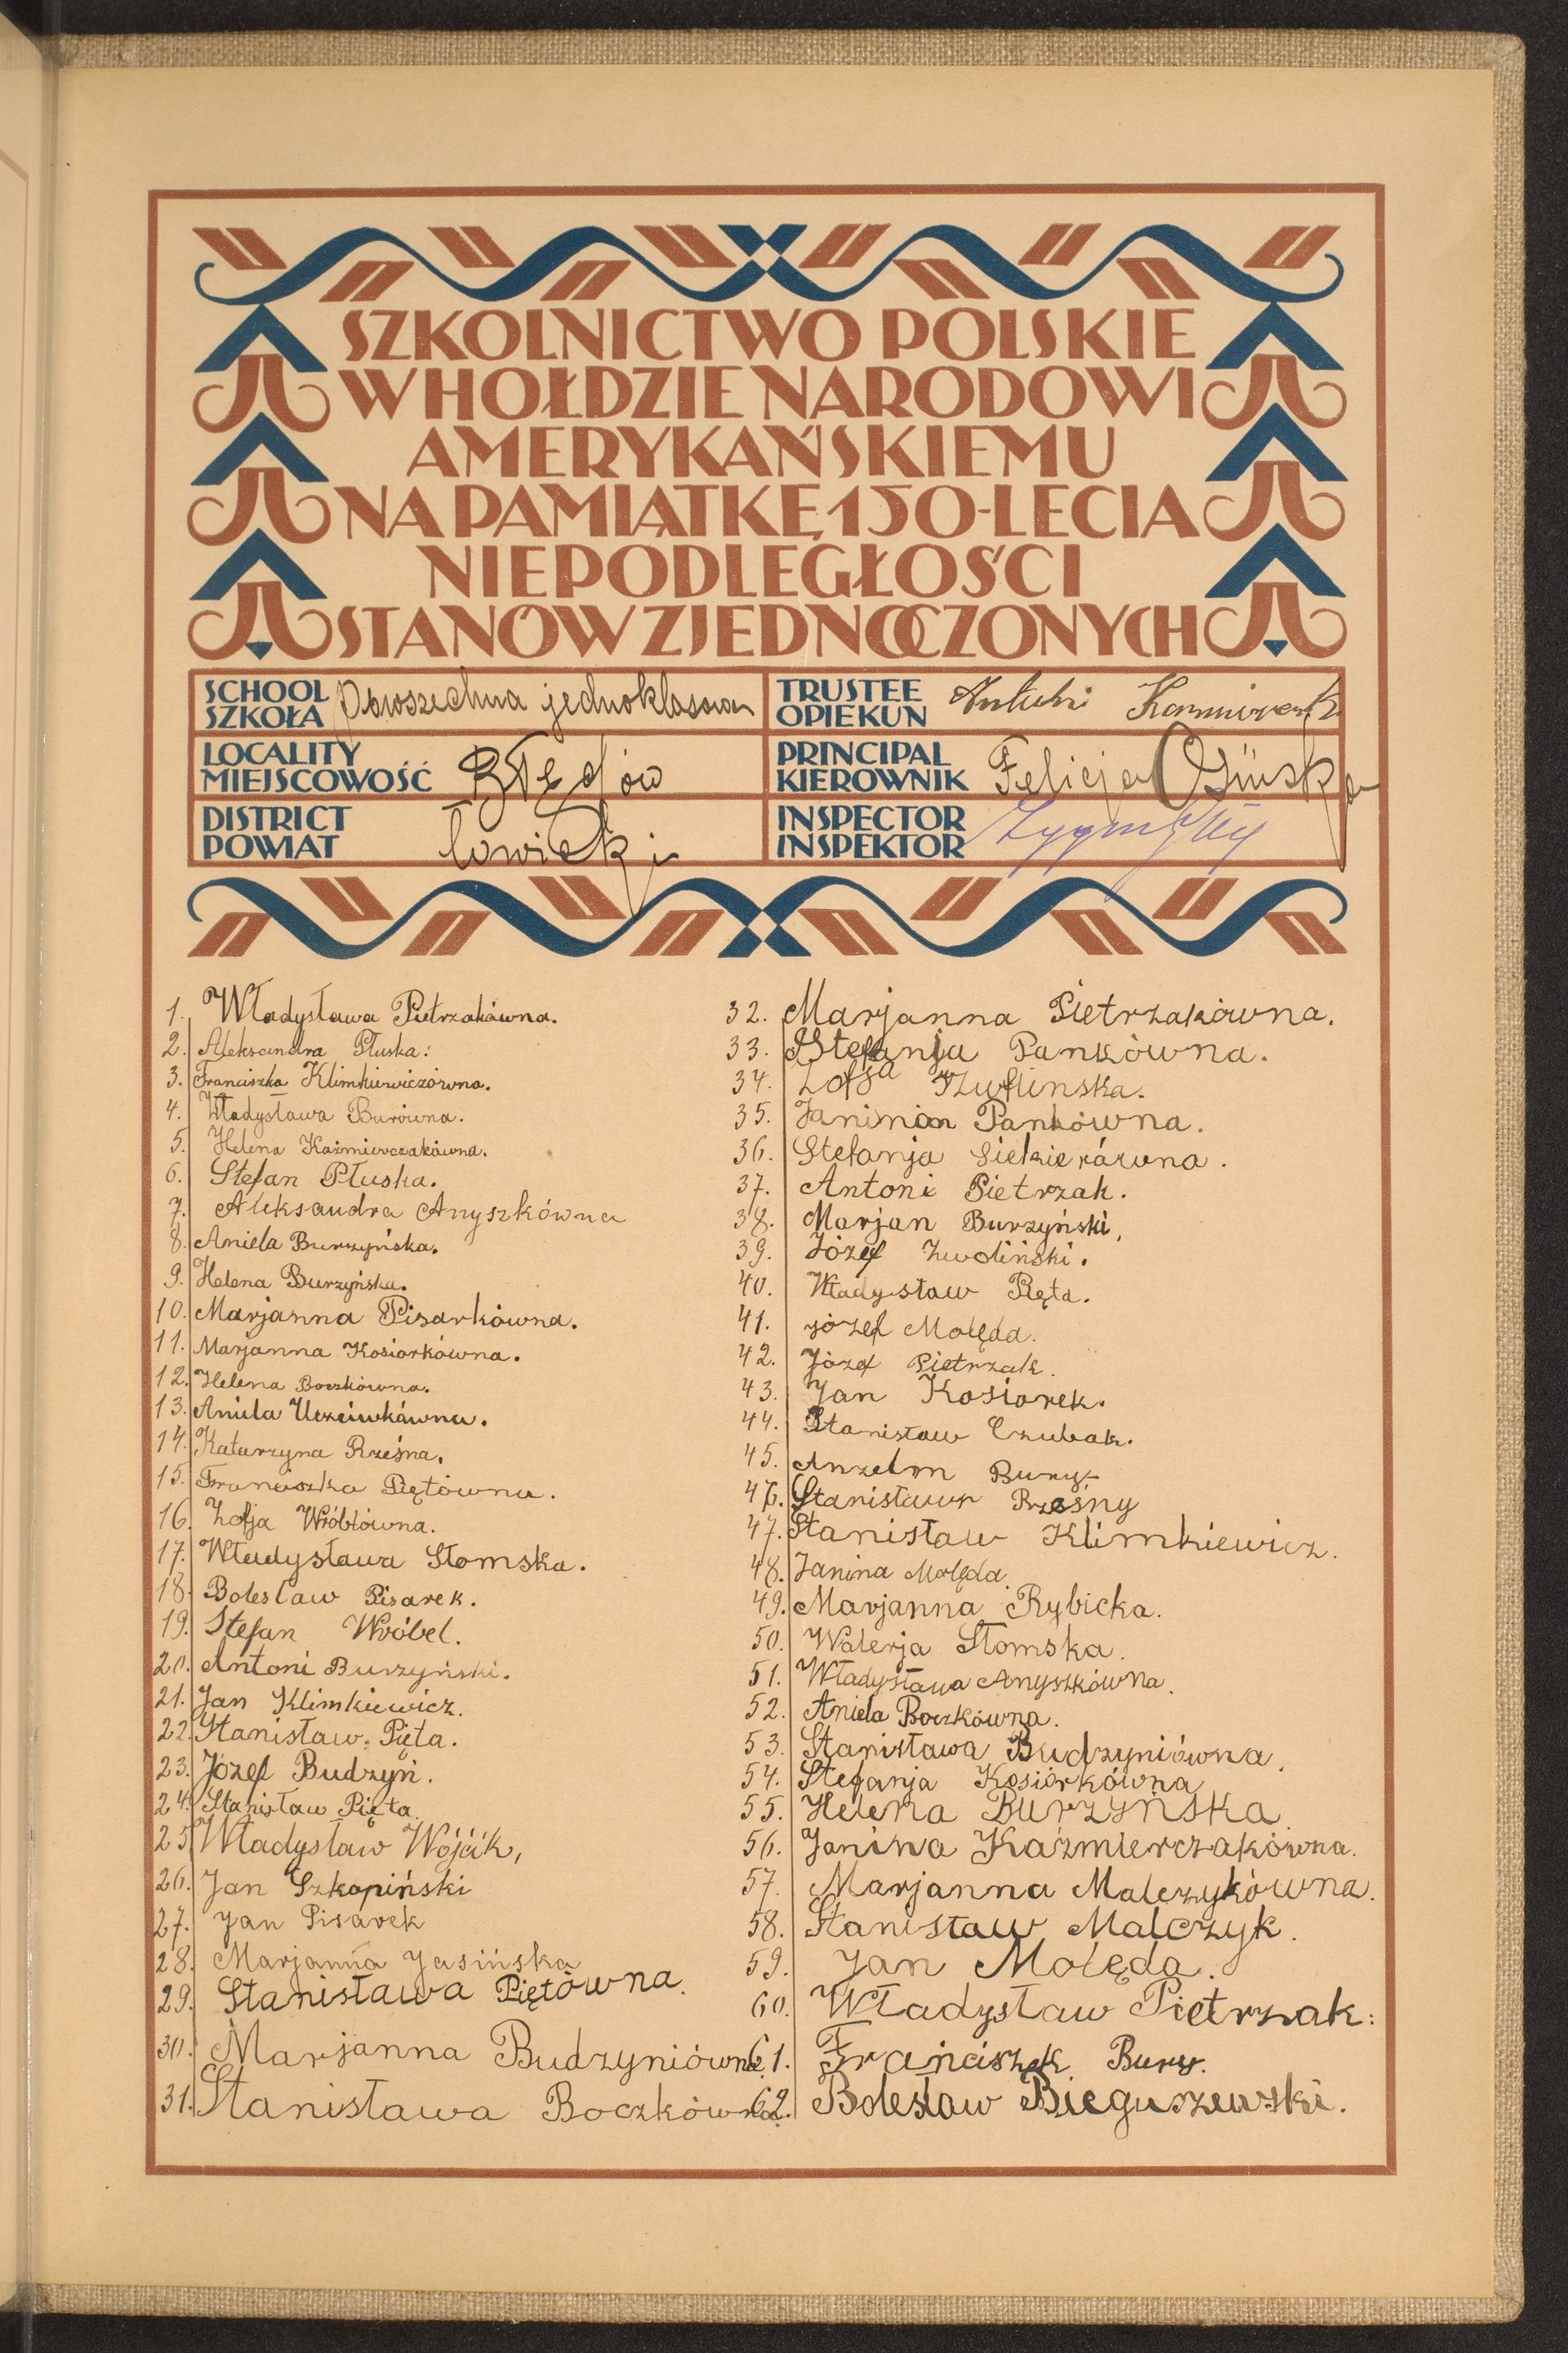 SZKOLNICTWO POLSKIE
W HOŁDZIE NARODOWI
AMERYKAŃSKIEMU
NA PAMIĄTKĘ 150-LECIA
NIEPODLEGŁOŚCI
STANÓW ZJEDNOCZONYCH
SCHOOL
SZKOŁA Powszechna jednoklasowa
TRUSTEE
OPIEKUN Antoni
LOCALITY
MIEJSCOWOŚĆ Błędów
PRINCIPAL
KIEROWNIK Felicja
DISTRICT
POWIAT Łowicki
INSPECTOR
INSPEKTOR
1. Władysława Pietrzakówna.
2. Aleksandra Płuska:
3. Franciszka Klimkiewiczówna.
4. Władysława Burówna.
5. Helena Kaźmierczakówna.
6. Stefan Płuska.
7. Aleksandra Anyszkówna
8. Aniela Burzyńska.
9. Helena Burzyńska.
10. Marjanna Pisarkówna.
11. Marjanna Kosiorkówna.
12. Helena Boczkówna.
13. Aniela Uczciwkówna.
14. Katarzyna Rześna.
15. Franciszka Piętówna.
16. Zofja Wróblówna.
17. Władysława Słomska.
18. Bolesław Pisarek.
19. Stefan Wróbel.
20. Antoni Burzyński.
21. Jan Klimkiewicz.
22. Stanisław Pięta.
23. Józef Budzyń.
24. Stanisław Pięta.
25. Władysław Wójcik,
26. Jan Szkopiński
27. Jan Pisarek
28. Marjanna Jasińska
29. Stanisława Piętówna.
30. Marjanna Budzyniówna.
31. Stanisława Boczkówna.
32. Marjanna Pietrzakówna.
33. Stefanja Pankówna.
34. Zofja
35. Janina Pankówna.
36. Stefanja Siekierówna.
37. Antoni Pietrzak.
38. Marjan Burzyński,
39. Józef Zwoliński.
40. Władysław Pięta.
41. Józef Molęda.
42. Józef Pietrzak.
43. Jan Kosiorek.
44. Stanisław Czubak.
45. Anzelm Bury
46. Stanisław Rześny
47. Stanisław Klimkiewicz.
48. Janina Molęda.
49. Marjanna Rybicka.
50. Walerja Słomska.
51. Władysława Anyszkówna.
52. Aniela Boczkówna.
53. Stanisława Budzyniówna.
54. Stefanja Kosiorkówna
55. Helena Burzyńska.
56. Janina Kaźmierczakówna.
57. Marjanna Malczykówna.
58. Stanisław Malczyk.
59. Jan Molęda.
60. Władysław Pietrzak:
61. Franciszek Bury.
62. Bolesław Bieguszewski.